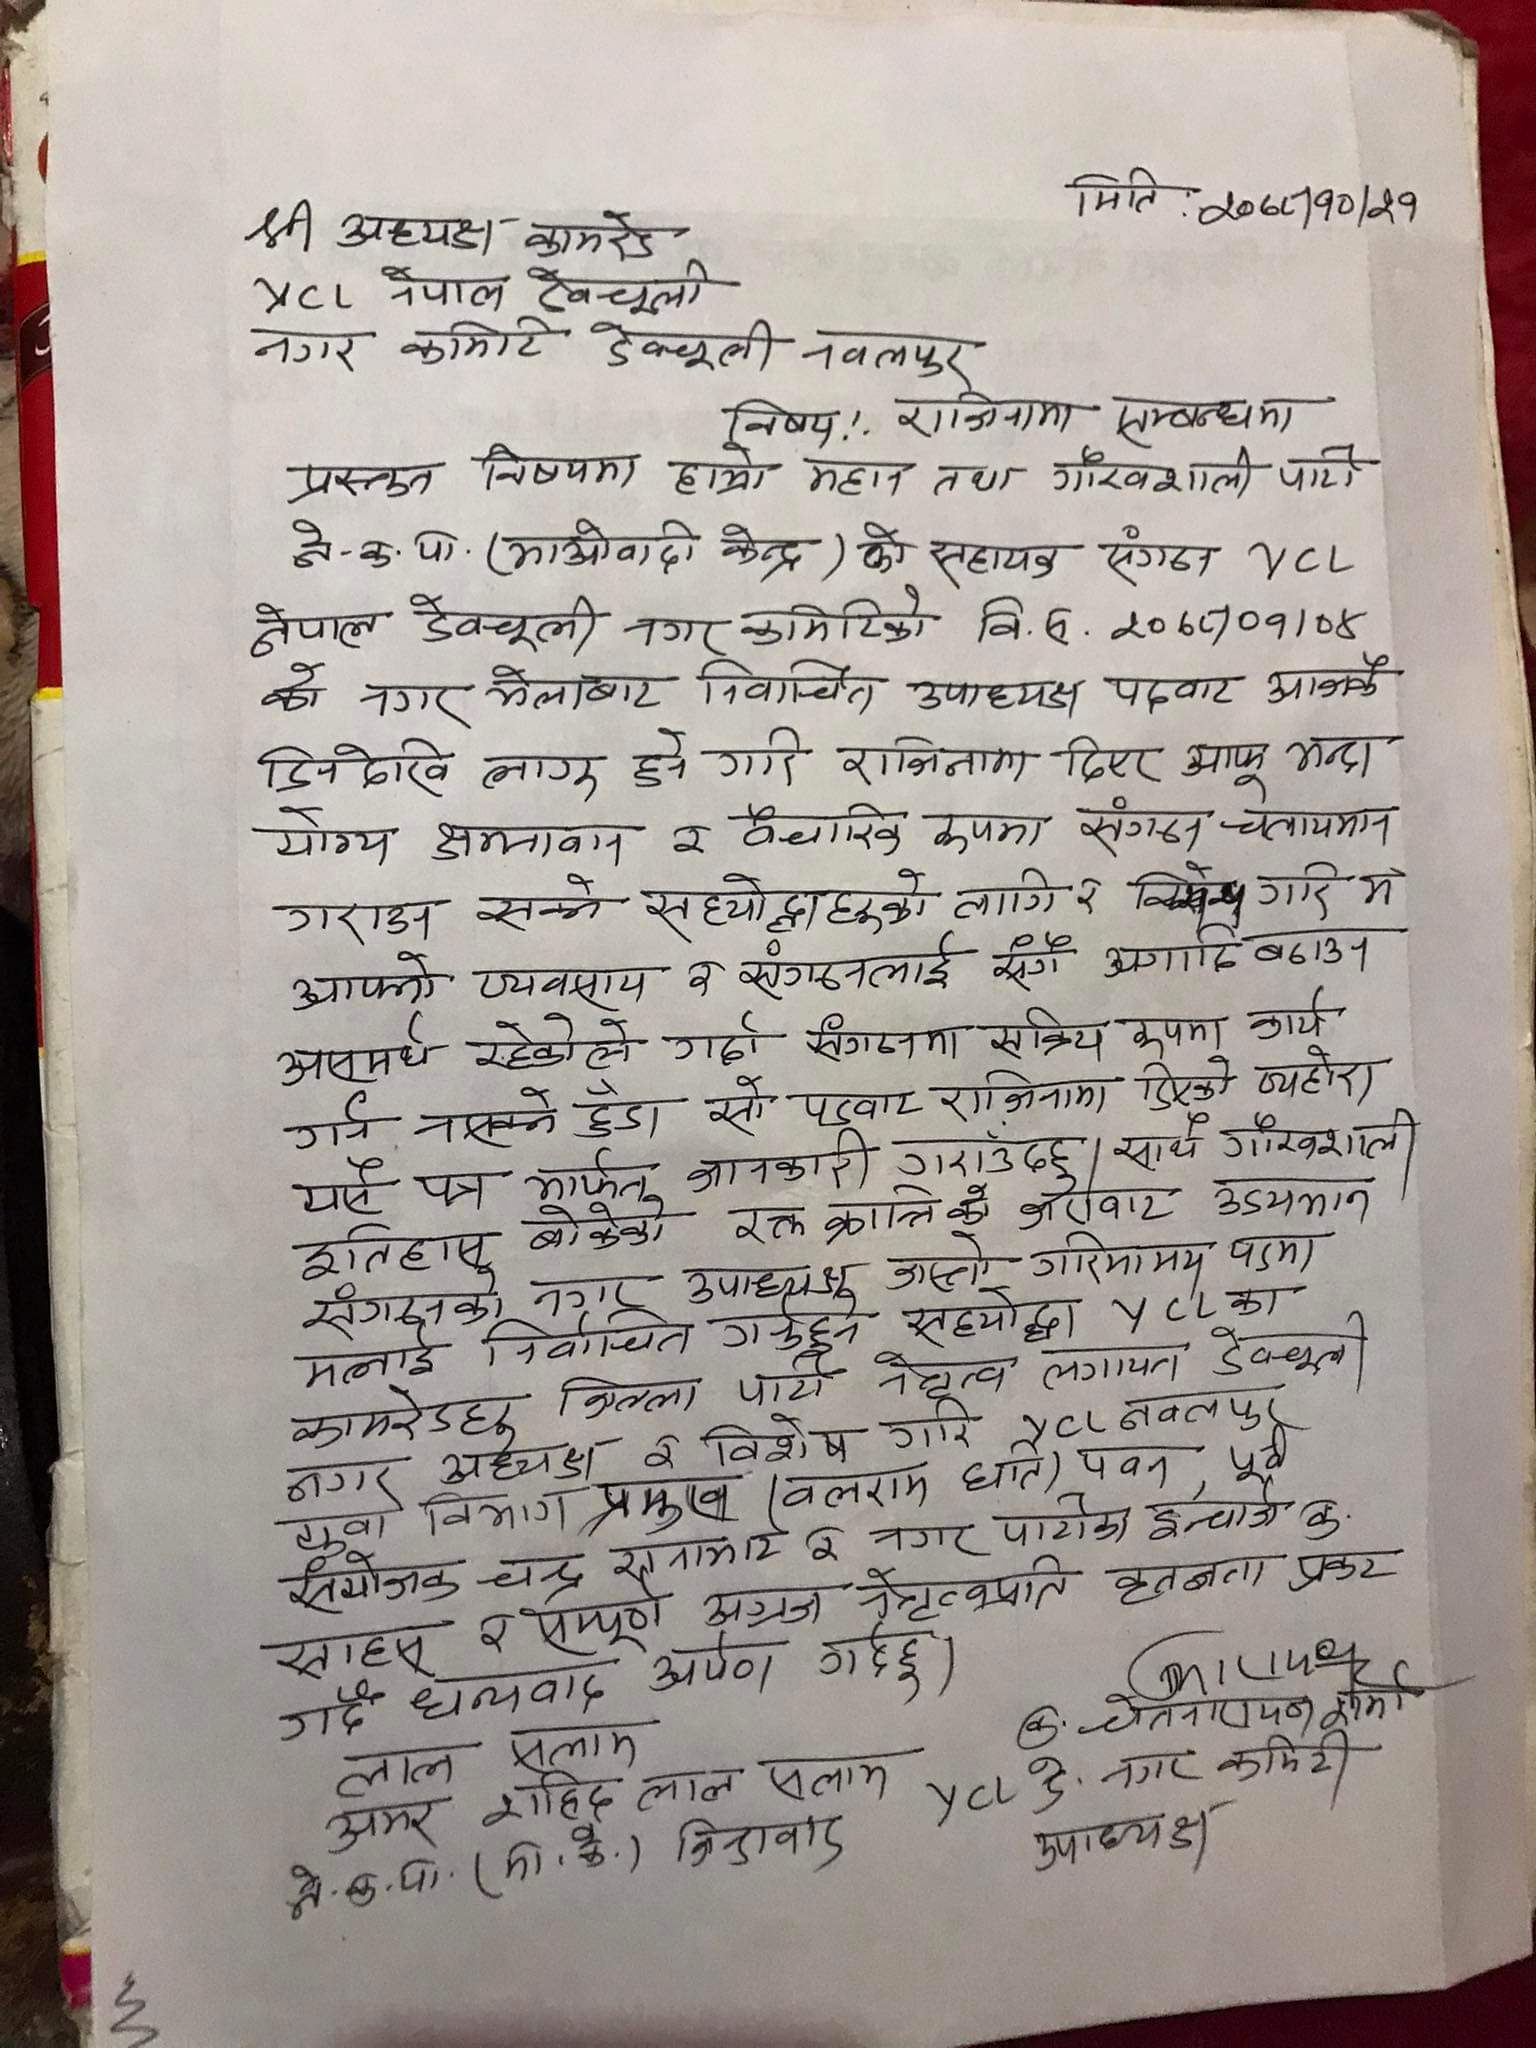 मिति : २०७८/१०/२१
श्री अध्यक्ष कामरेड
YCL नेपाल देवचूली
नगर कमिटि देवचूली नवलपुर
विषय :. राजिनामा सम्बन्धमा
प्रस्तुत विषयमा हाम्रो महान तथा गौरवशाली पार्टी
ने.क.पा. (माओवादी केन्द्र) को सहायक संगठन YCL
नेपाल देवचूली नगर कमिटिको वि.स. २०७८/०९/०४
को नगर भेलाबाट निर्वाचित उपाध्यक्ष पदबाट आजकै
दिनदेखि लागू हुने गरि राजिनामा दिएर आफू भन्दा
योग्य क्षमतावान र वैचारिक रूपमा संगठन चलायमान
गराउन सक्ने सहयोद्धाहरूको लागि र गरि म
आफ्नो व्यवसाय र संगठनलाई सँगै अगाडि बढाउन
असमर्थ रहेकोले गर्दा संगठनमा सक्रिय रूपमा कार्य
गर्न नसक्ने हुँदा सो पदबाट राजिनामा दिएको व्यहोरा
यसै पत्र मार्फत जानकारी गराउँदछु। साथै गौरवशाली
इतिहास बोकेको रक्त क्रान्तिको जगबाट उदयमान
संगठनको नगर उपाध्यक्ष जस्तो गरिमामय पदमा
मलाई निर्वाचित गर्नुहुने सहयोद्धा YCL का
कामरेडहरू जिल्ला पार्टी नेतृत्व लगायत देवचूली
नगर अध्यक्ष र विशेष गरि YCL नवलपुर
युवा विभाग प्रमुख (वलराम घर्ति) पवन, पूर्व
संयोजक चन्द्र सानामाटे र नगर पार्टीका इन्चार्ज क.
साहस र सम्पूर्ण अग्रज नेतृत्वप्रति कृतज्ञता प्रकट
गर्दै धन्यवाद अर्पण गर्दछु।
लाल सलाम
क. चेतनारायण शर्मा
अमर शहिद लाल सलाम
YCL दे. नगर कमिटी
ने.क.पा. (मा.के.) जिन्दावाद
उपाध्यक्ष